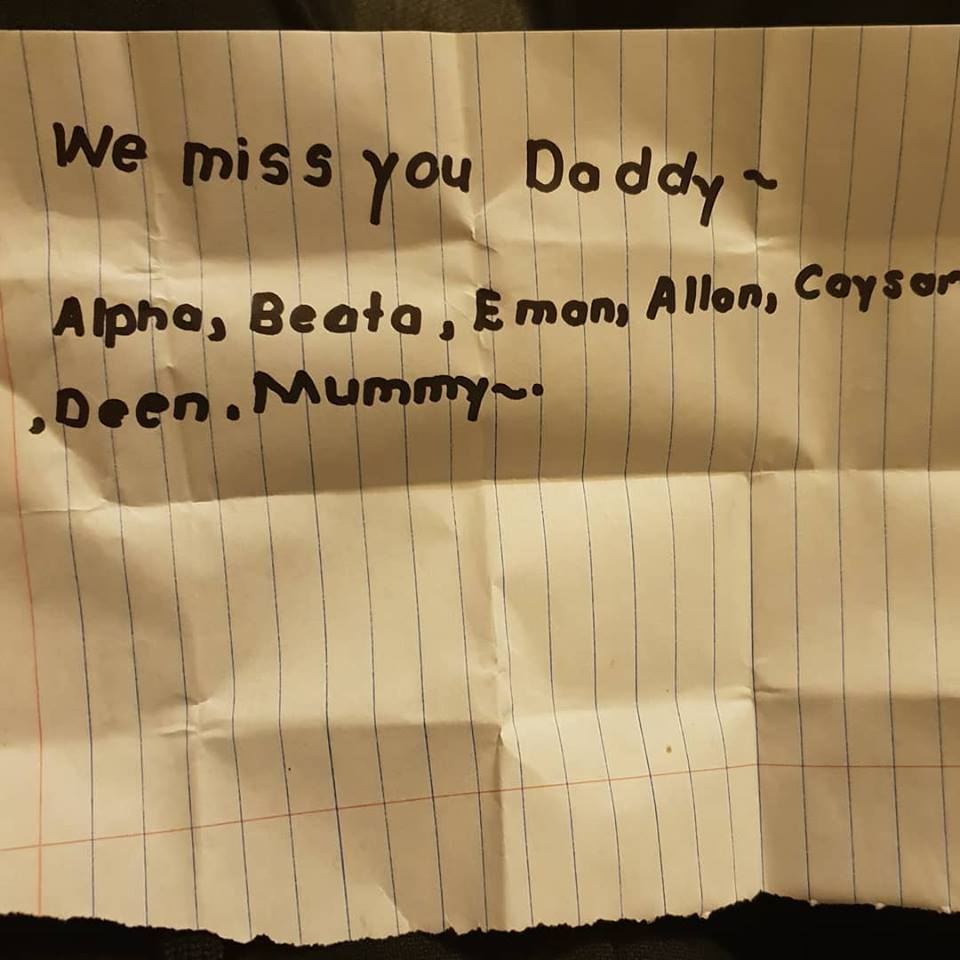 We miss you Daddy~
Alpha, Beata, Eman, Allan, Caysar
,Deen. Mummy~.